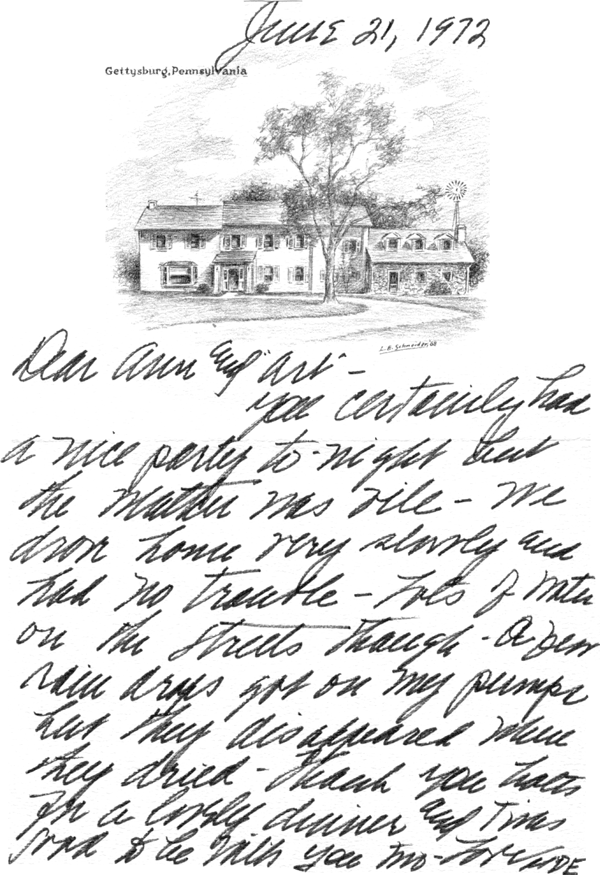 June 21, 1972
Gettysburg, Pennsylvania
L. E. Schneider, '68
Dear Ann and "Art" –
you certainly had
a nice party to-night but
the weather was vile – We
drove home very slowly and
had no trouble – lots of water
on the streets though – A few
rain drops got on my pumps
but they disappeared when
they dried – Thank you
for a lovely dinner and 'twas
good to be with you two – Love MDE